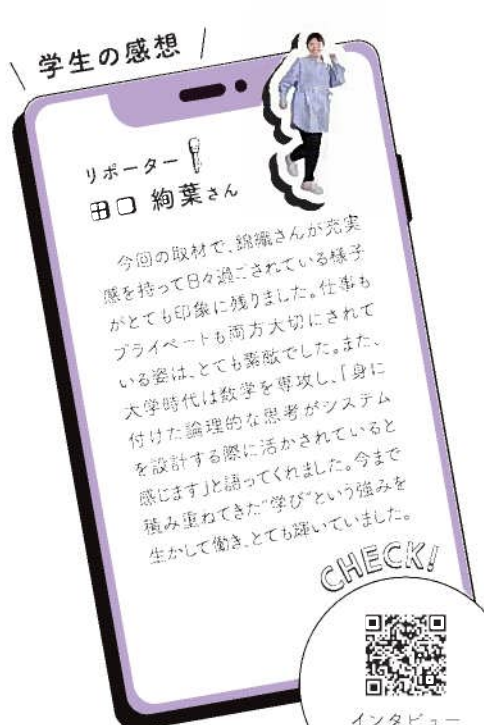 学生の感想
リポーター
田口 絢葉さん
今回の取材で、錦織さんが充実
感を持って日々過ごされている様子
がとても印象に残りました。仕事も
プライベートも両方大切にされて
いる姿は、とても素敵でした。また、
大学時代は数学を専攻し、「身に
付けた論理的な思考がシステム
を設計する際に活かされていると
感じます」と語ってくれました。今まで
積み重ねてきた"学び"という強みを
生かして働き、とても輝いていました。
CHECK!
インタビュー